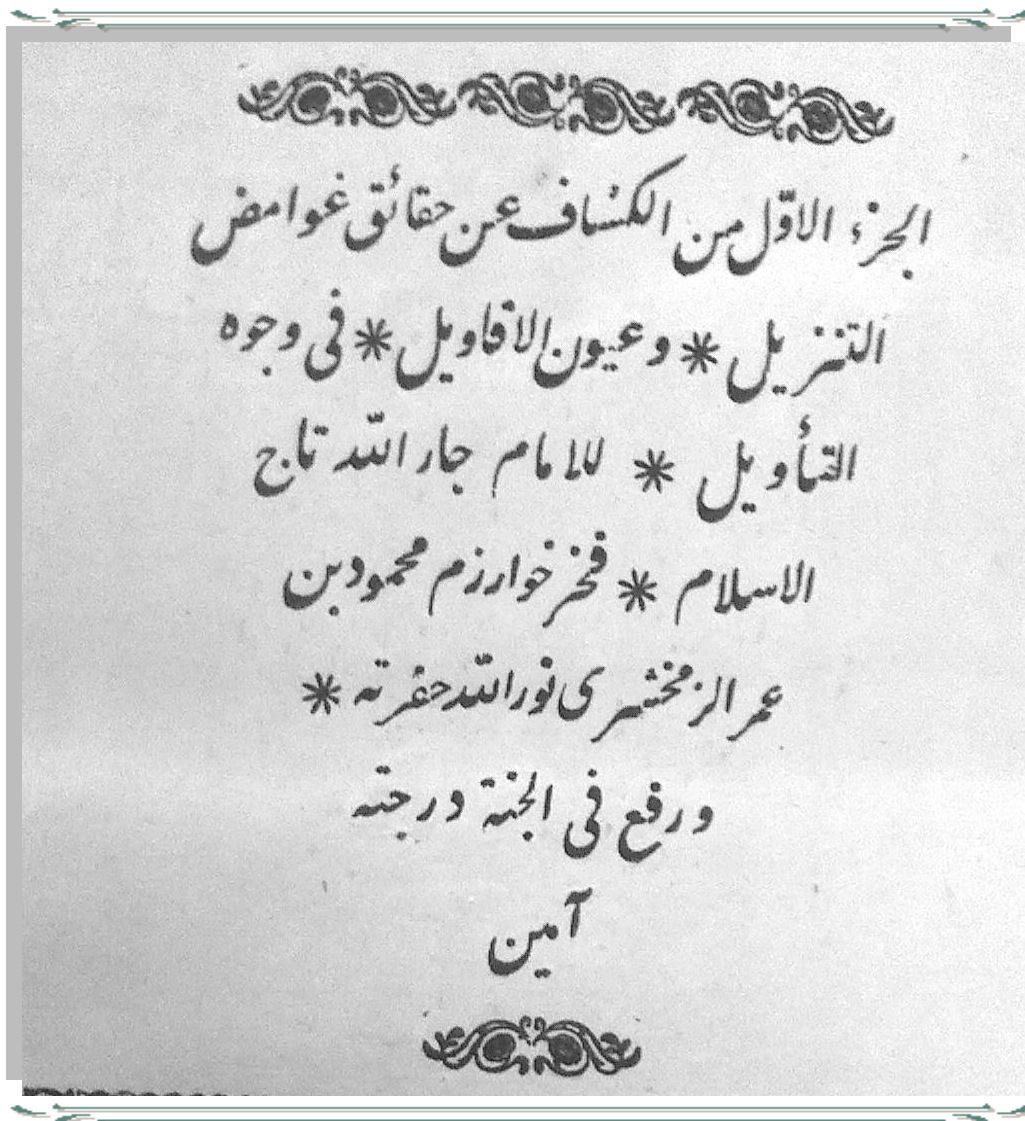 الجزء الاوّل من الكشاف عن حقائق غوامض
التنزيل * وعيون الاقاويل * فى وجوه
التأويل * للامام جار الله تاج
الاسلام * فخر خوارزم محمود بن
عمر الزمخشرى نور الله حفرته *
ورفع فى الجنة درجته
آمين